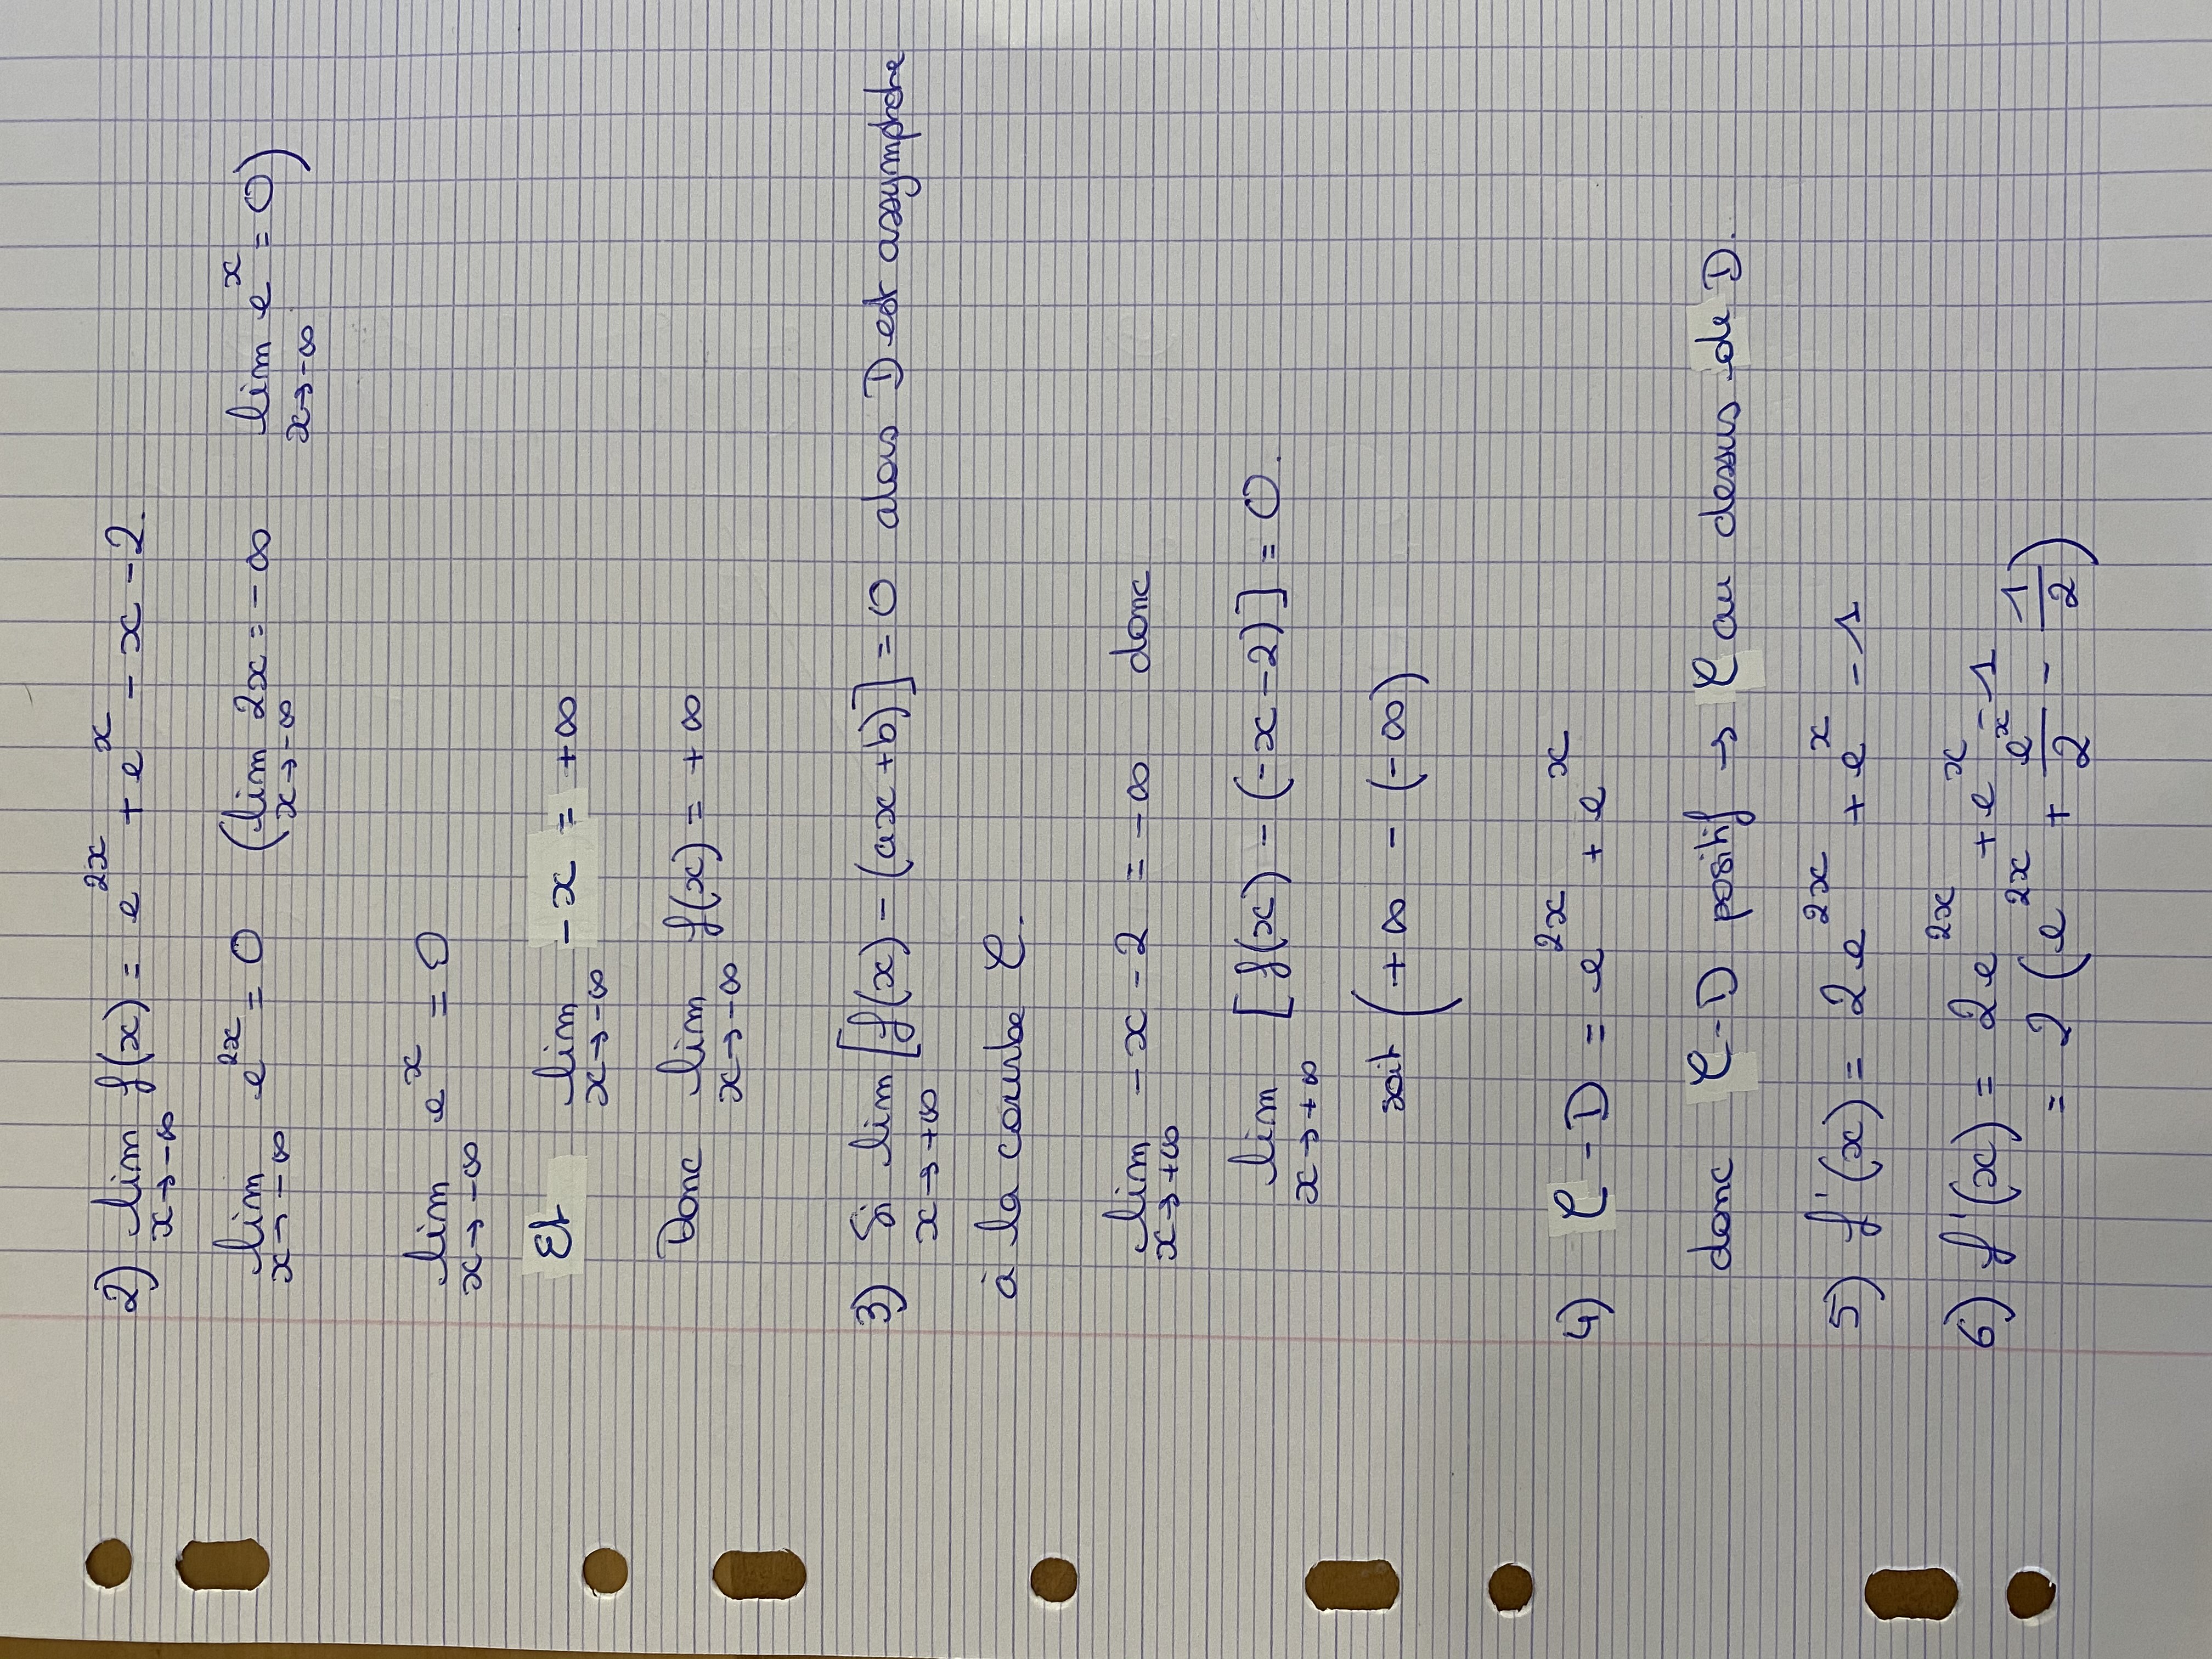 2) lim f(x) = e^{2x} + e^x - x - 2.
x→-∞
lim e^{2x} = 0 (lim 2x = -∞ lim e^x = 0)
x→-∞ x→-∞ x→-∞
lim e^x = 0
x→-∞
Et lim -x = +∞
x→-∞
Donc lim f(x) = +∞
x→-∞
3) Si lim [f(x) - (ax+b)] = 0 alors D est assymptote
x→+∞
à la courbe C.
lim -x - 2 = -∞ donc
x→+∞
lim [f(x) - (-x-2)] = 0.
x→+∞
soit (+∞ - (-∞)
4) C - D = e^{2x} + e^x
donc C-D positif → C au dessus de D.
5) f'(x) = 2e^{2x} + e^x - 1
6) f'(x) = 2e^{2x} + e^x - 1
= 2 (e^{2x} + e^x/2 - 1/2)